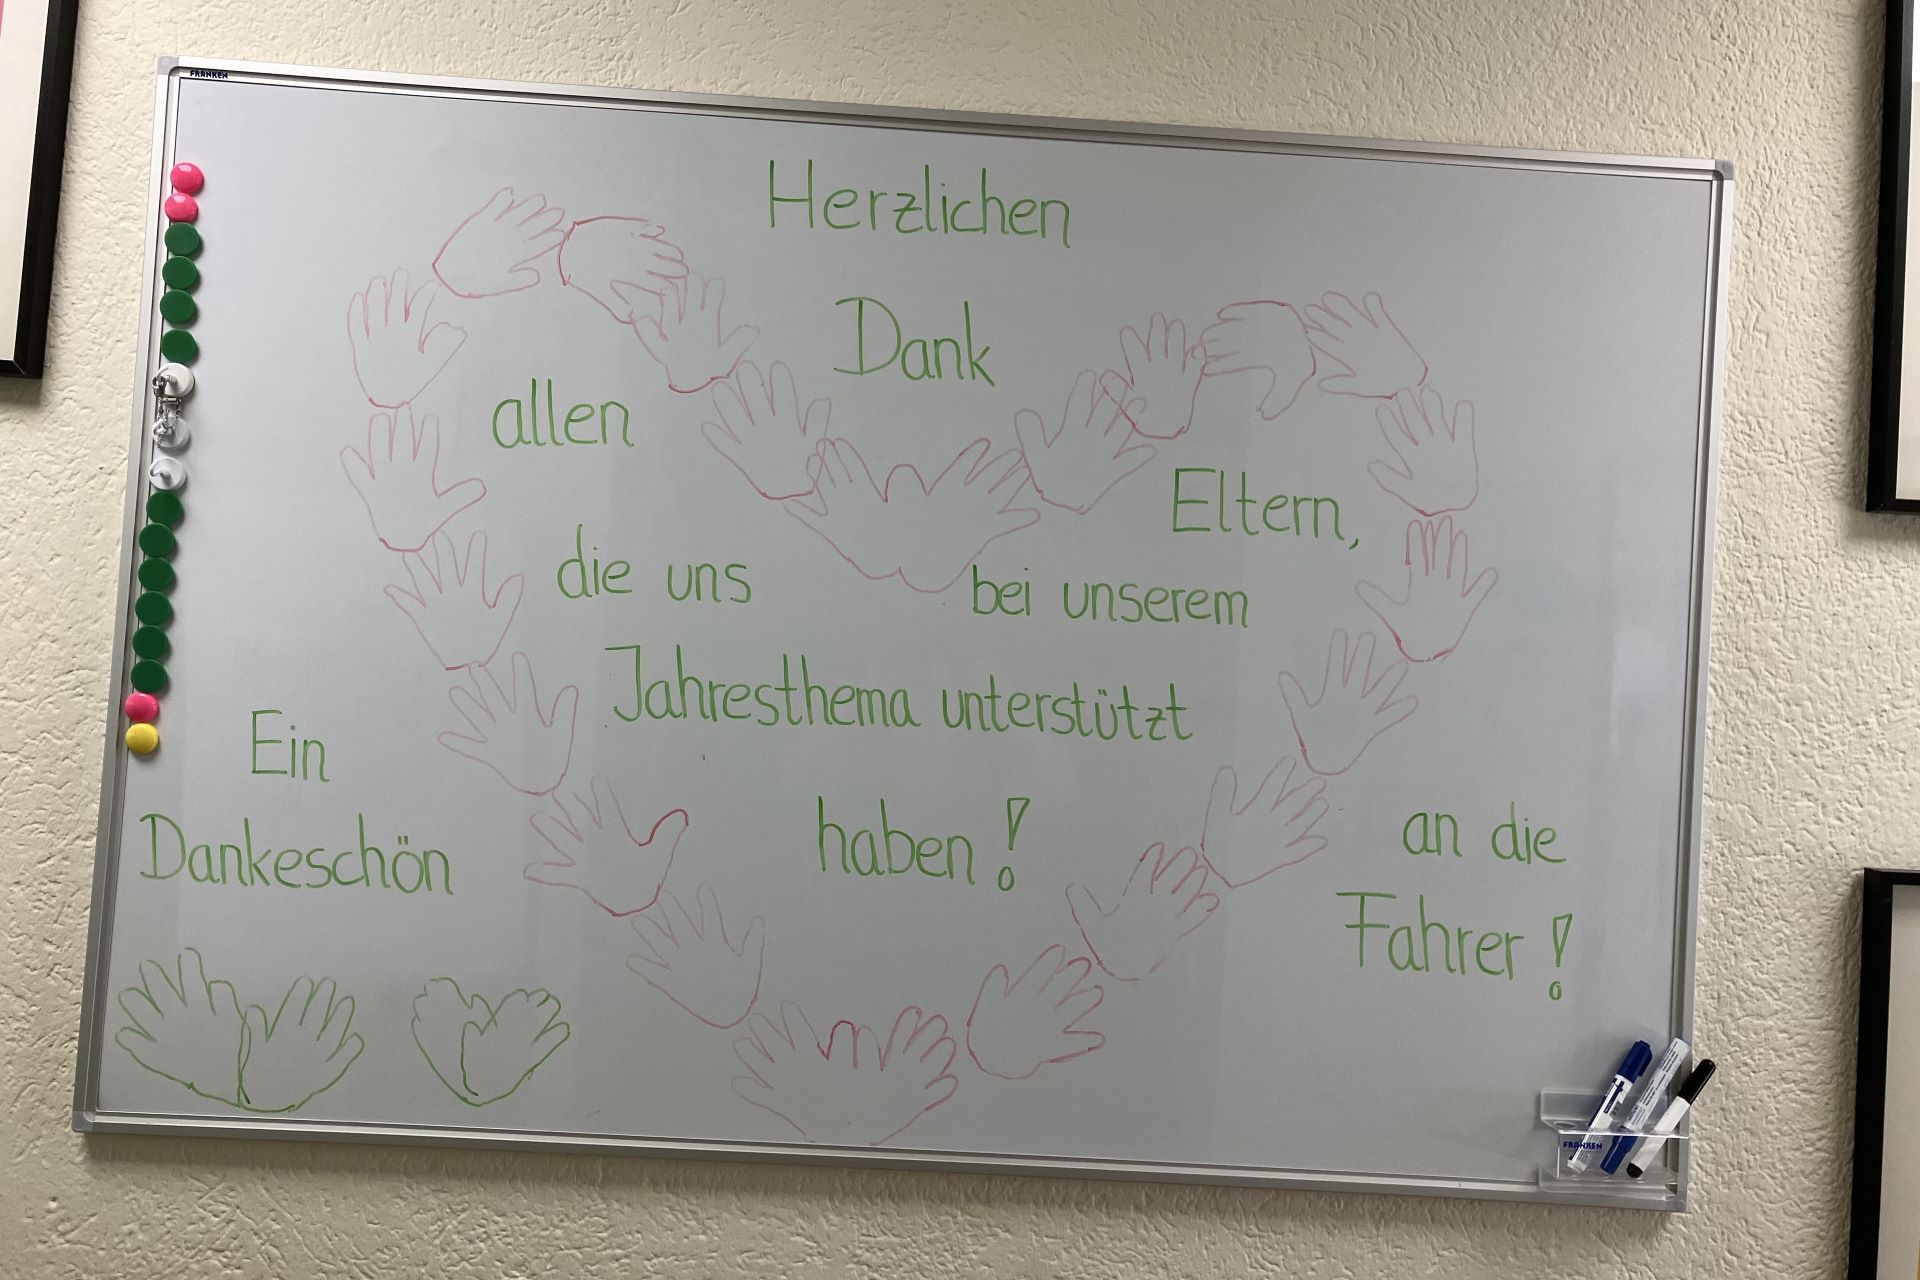 FRANKEN
Herzlichen
Dank
allen Eltern,
die uns bei unserem
Jahresthema unterstützt
haben!
Ein
Dankeschön
an die
Fahrer!
FRANKEN